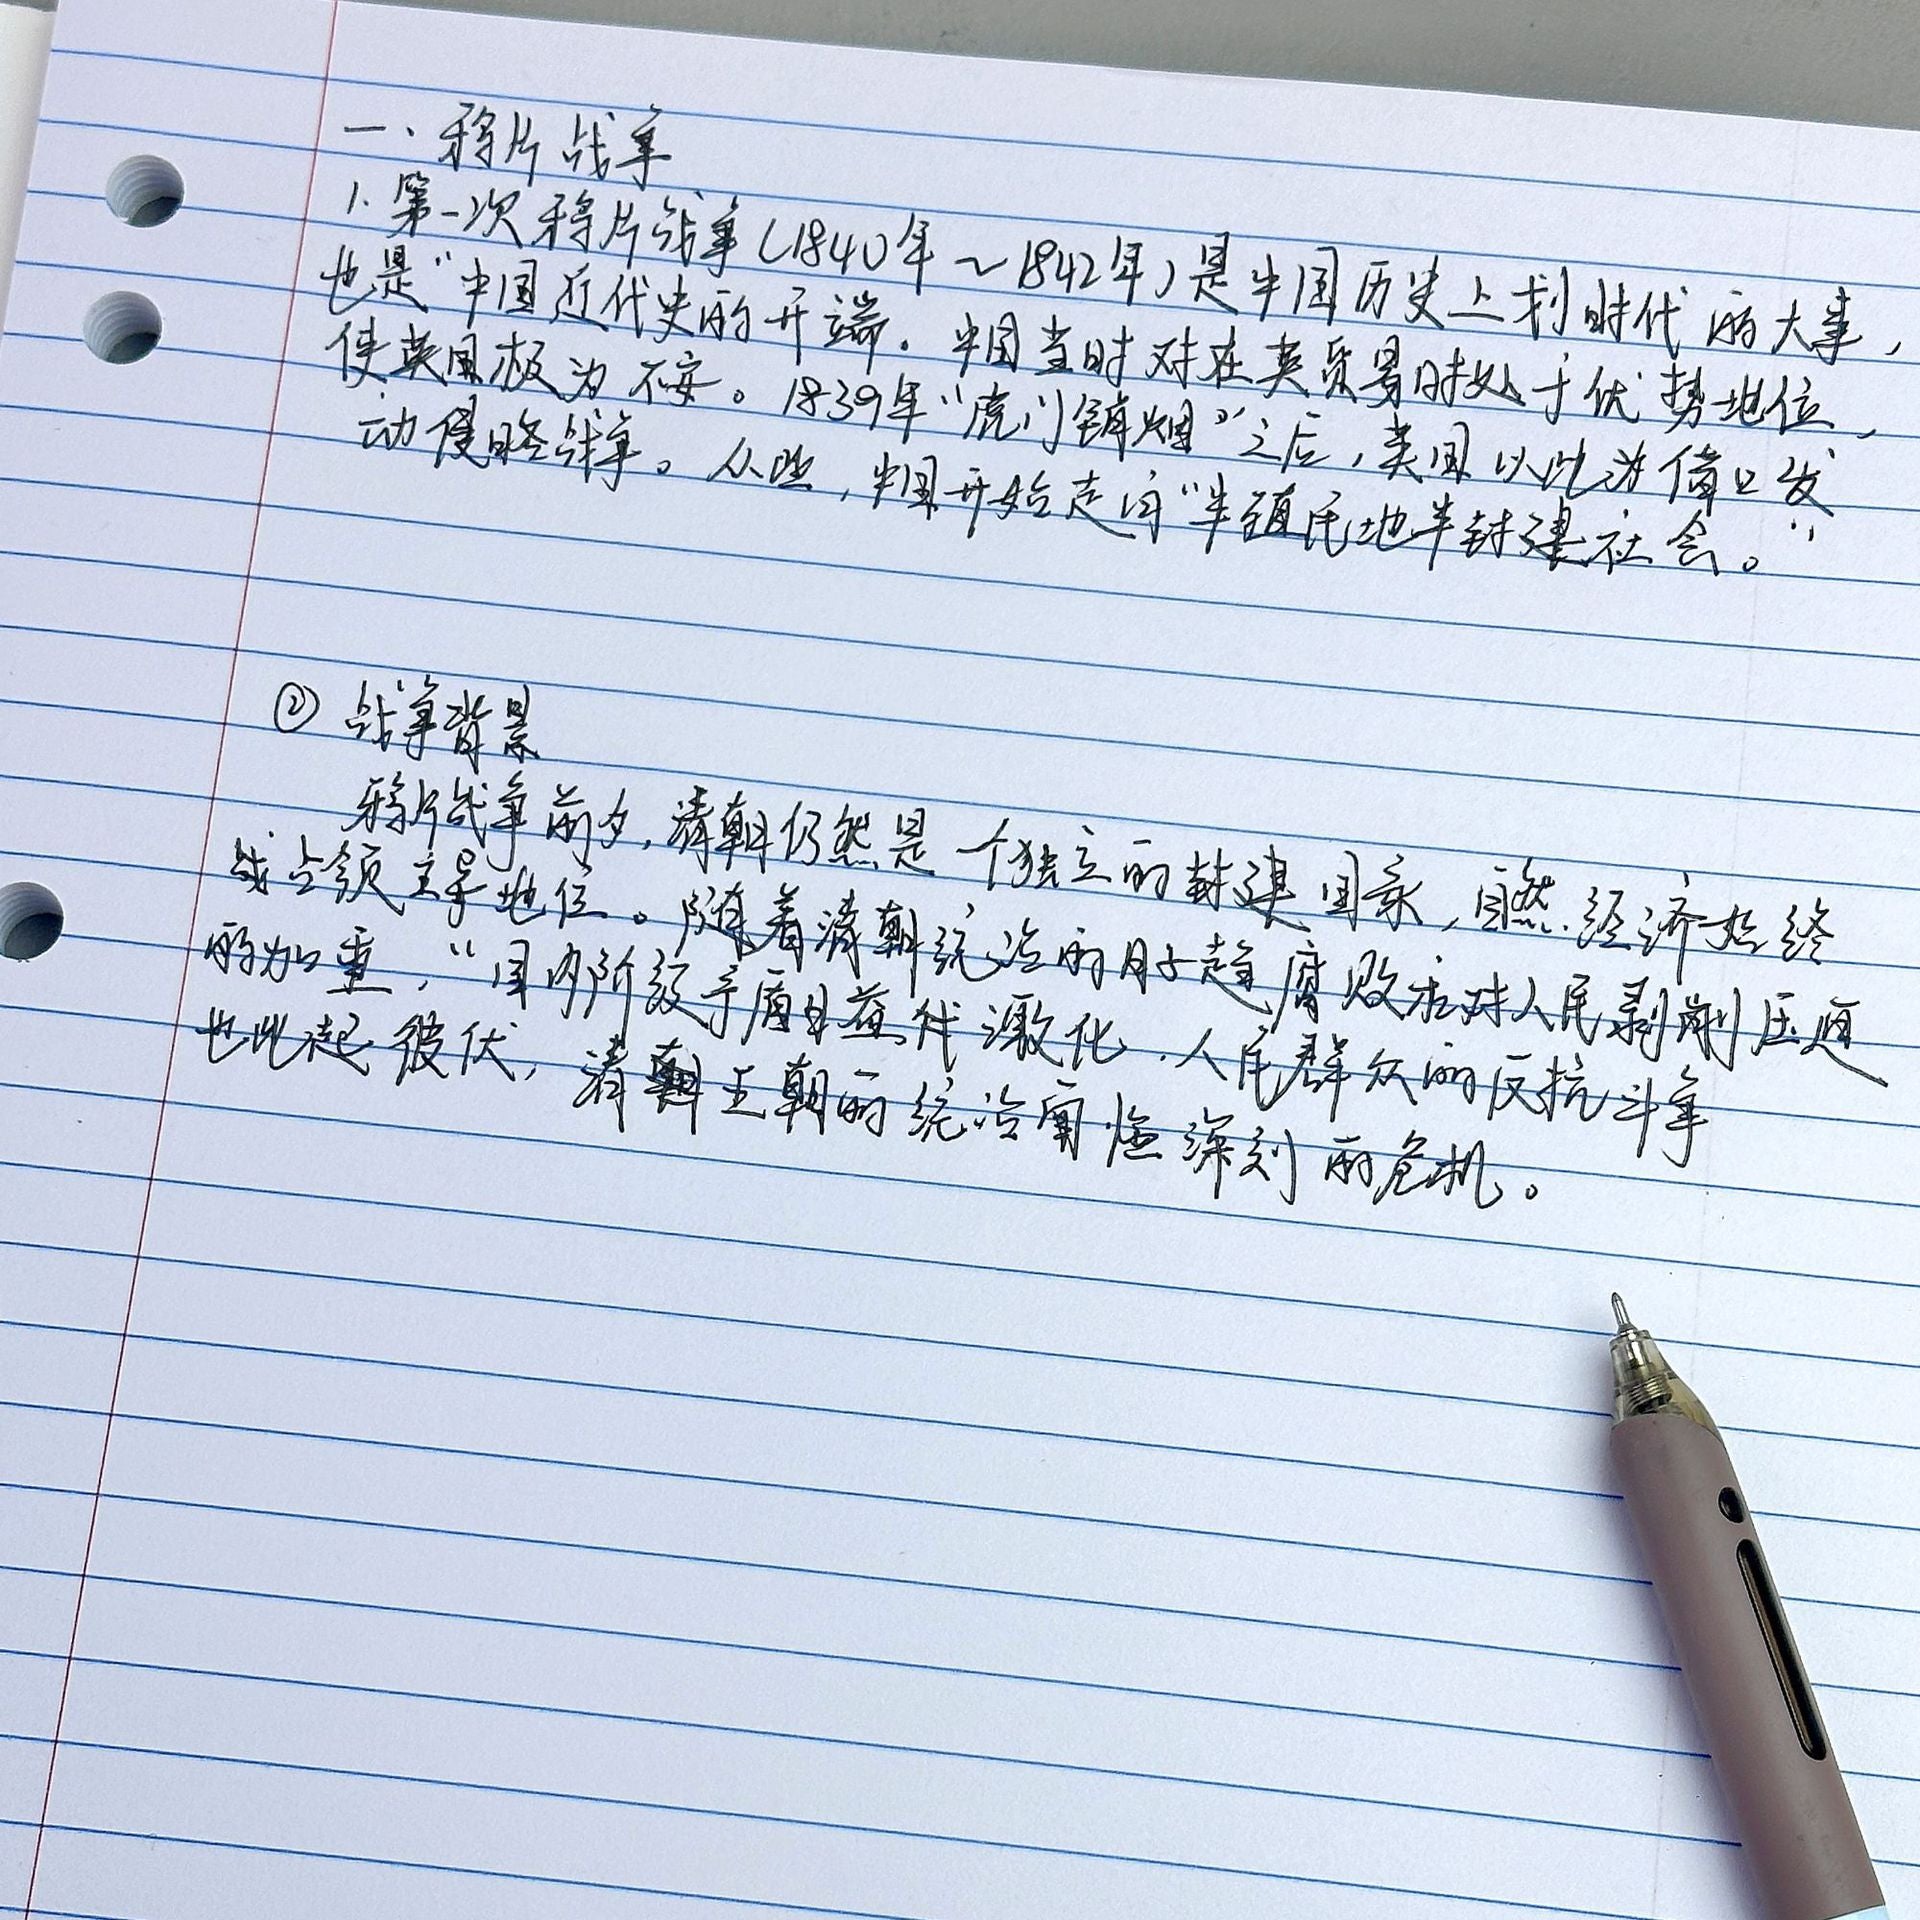 一、鸦片战争
1.第一次鸦片战争(1840年~1842年)是中国历史上划时代的大事,
也是“中国近代史的开端。中国当时对在英贸易时处于优势地位,
使英国极为不安。1839年“虎门销烟”之后,英国以此为借口发
动侵略战争。从此,中国开始走向“半殖民地半封建社会。”
② 战争背景
鸦片战争前夕,清朝仍然是一个独立的封建国家,自然经济始终
占领主导地位。随着清朝统治的日子趋腐败和对人民剥削压迫
的加重,“国内阶级矛盾日益激化.人民群众的反抗斗争
也此起彼伏,清朝王朝的统治面临深刻的危机。